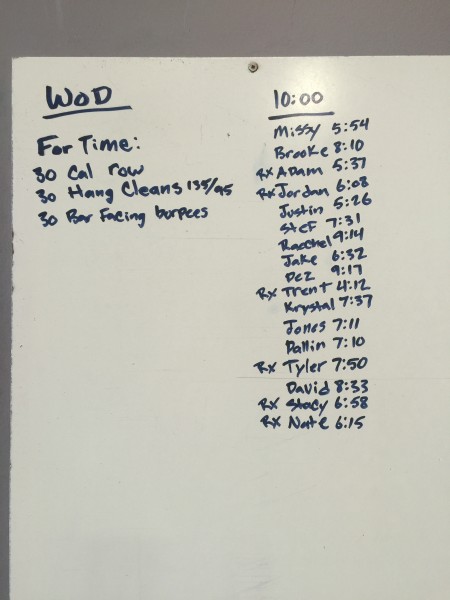 WOD
For Time:
30 Cal row
30 Hang Cleans 135/95
30 Bar Facing burpees
10:00
Missy 5:54
Brooke 8:10
RX Adam 5:37
RX Jordan 6:08
Justin 5:26
Stef 7:31
Raechel 9:14
Jake 6:32
Dez 9:17
RX Trent 4:12
Krystal 7:37
Jones 7:11
Dallin 7:10
RX Tyler 7:50
David 8:33
RX Stacy 6:58
RX Nate 6:15